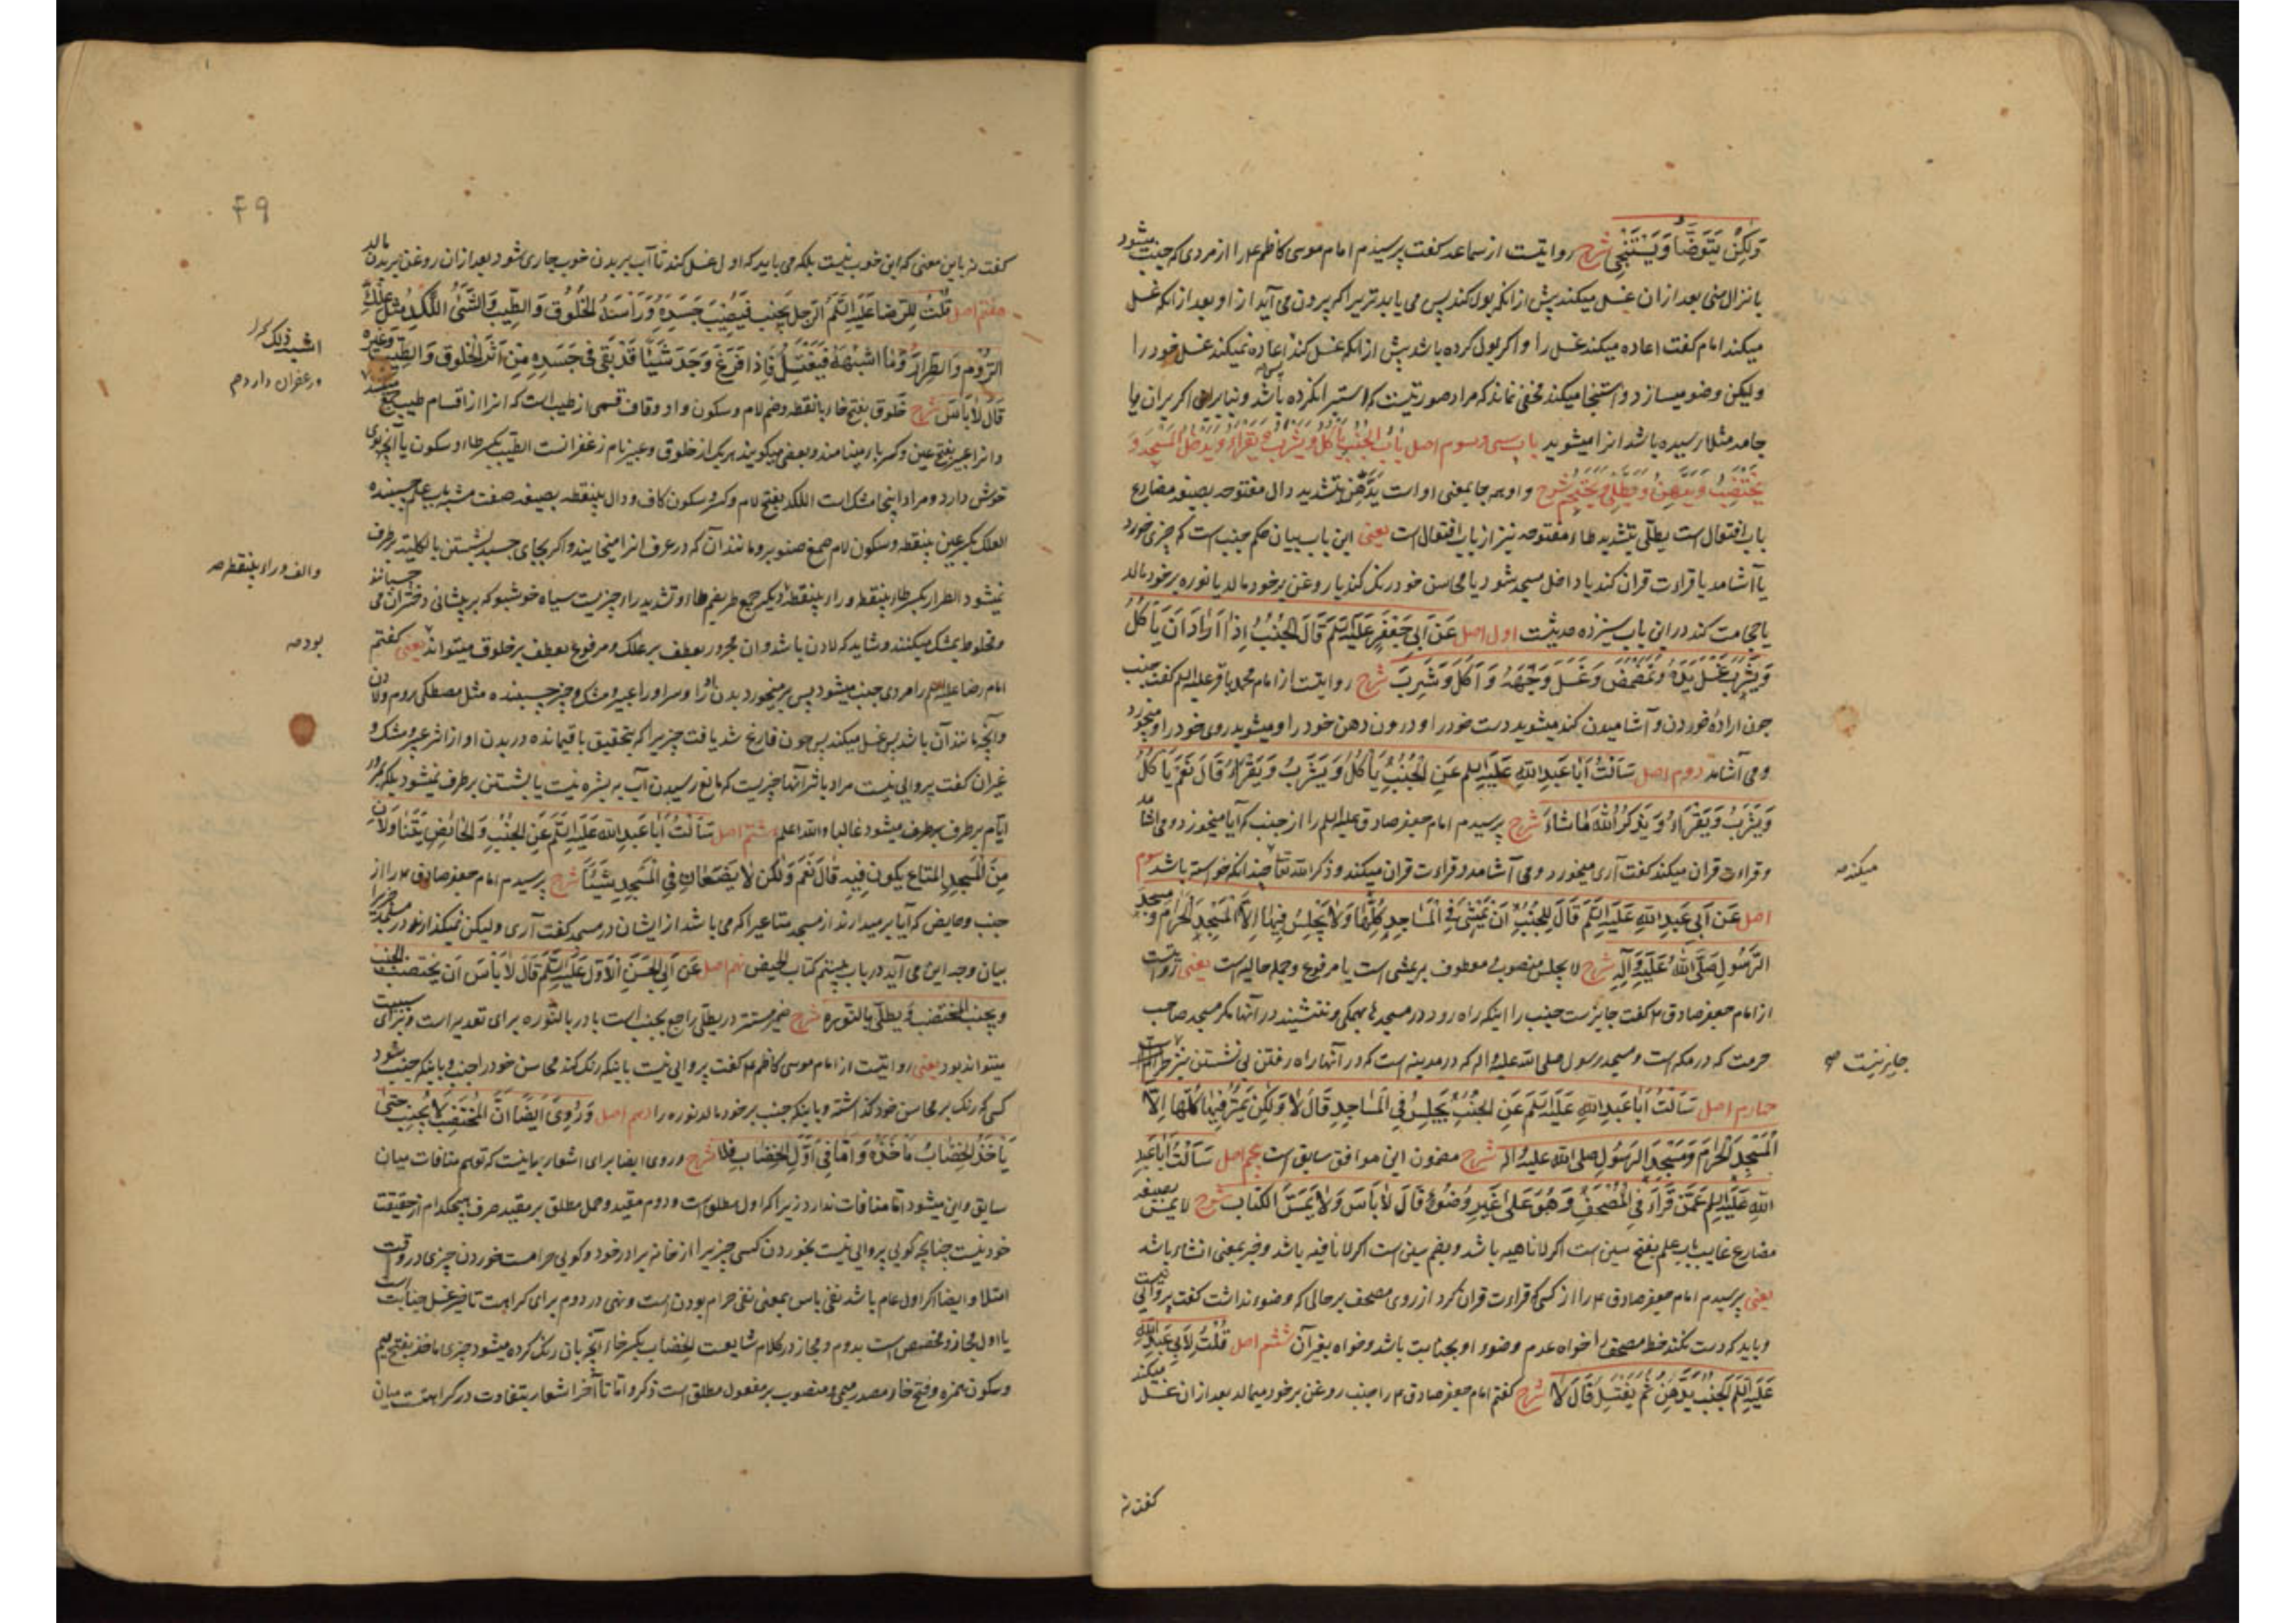 وَلَكِنْ يَتَوَضَّأُ وَيَسْتَنْجِي شرح روایتست از سماعه گفت پرسیدم امام موسی کاظم ع را از مردی که جنب میشود
بانزال منی بعد ازان غسل میکند پیش از انکه بول کند پس می یابد تریرا که بیرون می آید از او بعد از انکه غسل
میکند امام گفت اعاده میکند غسل را و اگر بول کرده باشد پیش از انکه غسل کند اعاده نمیکند غسل خود را
ولیکن وضو میسازد و استنجا میکند مخفی نماند که مراد صورتیست که استبرا نکرده باشد و بنابراین اگر بران یا
جامه مثلا رسیده باشد انرا میشوید باب سی و سوم اصل بَابُ الْجُنُبِ يَأْكُلُ وَيَشْرَبُ وَيَقْرَأُ وَيَدْخُلُ الْمَسْجِدَ وَ
يَخْتَضِبُ وَيَدَّهِنُ وَيَطَّلِي وَيَحْتَجِمُ شرح واو همه جا بمعنی او است يَدَّهِنُ بتشدید دال مفتوحه بصیغه مضارع
باب افتعال است یطلی بتشدید طاء مفتوحه نیز از باب افتعال است یعنی این باب بیان حکم جنب است که چیزی خورد
یا آشامد یا قراءت قران کند یا داخل مسجد شود یا محاسن خود رنک کند یا روغن برخود مالد یا نوره برخود مالد
یا حجامت کند در این باب سیزده حدیثست اول اصل عَنْ أَبِي جَعْفَرٍ عَلَيْهِ السَّلَمُ قَالَ الْجُنُبُ إِذَا أَرَادَ أَنْ يَأْكُلَ
وَيَشْرَبَ غَسَلَ يَدَهُ وَتَمَضْمَضَ وَغَسَلَ وَجْهَهُ وَأَكَلَ وَشَرِبَ شرح روایتست از امام محمد باقر علیه السلم گفت جنب
چون ارادۀ خوردن و آشامیدن کند میشوید دست خود را و درون دهن خود را و میشوید روی خود را و میخورد
و می آشامد دوم اصل سَأَلْتُ أَبَا عَبْدِ اللَّهِ عَلَيْهِ السلم عَنِ الْجُنُبِ يَأْكُلُ وَيَشْرَبُ وَيَقْرَأُ قَالَ نَعَمْ يَأْكُلُ
وَيَشْرَبُ وَيَقْرَأُ وَيَذْكُرُ اللَّهَ مَا شَاءَ شرح پرسیدم امام جعفر صادق علیه السلم را از جنب که آیا میخورد و می آشامد
و قراءت قران میکند گفت آری میخورد و می آشامد و قراءت قران میکند و ذکر الله تعا چندانکه خواسته باشد سوم
میکند صه
اصل عَنْ أَبِي عَبْدِ اللَّهِ عَلَيْهِ السَّلَمُ قَالَ لِلْجُنُبِ أَنْ يَمْشِيَ فِي الْمَسَاجِدِ كُلِّهَا وَلَا يَجْلِسُ فِيهَا إِلَّا الْمَسْجِدَ الْحَرَامَ وَ مَسْجِدَ
الرَّسُولِ صَلَّى اللَّهُ عَلَيْهِ وَآلِهِ شرح لا یجلس منصوب و معطوف بر یمشی است یا مرفوع و جمله حالیه است یعنی روایتست
از امام جعفر صادق ع گفت جایزست جنب را اینکه راه رود در مسجد ها همکی و ننشیند در آنها مکر مسجد صاحب
حرمت که در مکه است و مسجد رسول صلی الله علیه و اله که در مدینه است که در آنها راه رفتن بی نشستن نیز
جایز نیست صه
چهارم اصل سَأَلْتُ أَبَا عَبْدِ اللَّهِ عَلَيْهِ السَّلَمُ عَنِ الْجُنُبِ يَجْلِسُ فِي الْمَسَاجِدِ قَالَ لَا وَلَكِنْ يَمُرُّ فِيهَا كُلِّهَا إِلَّا
الْمَسْجِدَ الْحَرَامَ وَمَسْجِدَ الرَّسُولِ صلی الله علیه و اله شرح مضمون این موافق سابق است پنجم اصل سَأَلْتُ أَبَا عَبْدِ
اللَّهِ عَلَيْهِ السلم عَمَّنْ قَرَأَ فِي الْمُصْحَفِ وَهُوَ عَلَى غَيْرِ وُضُوءٍ قَالَ لَا بَأْسَ وَلَا يَمَسَّ الْكِتَابَ شرح لا یمس بصیغه
مضارع غایب باب علم بفتح سین است اگر لا ناهیه باشد و بضم سین است اگر لا نافیه باشد و خبر بمعنی انشاء باشد
یعنی پرسیدم امام جعفر صادق ع را از کسی که قراءت قران کرد از روی مصحف بر حالی که وضوء نداشت گفت پروائی نیست
و باید که دست نکند خط مصحف را خواه عدم وضوء او بجنابت باشد و خواه بغیر آن ششم اصل قُلْتُ لِأَبِي عَبْدِ اللَّهِ
عَلَيْهِ السَّلَمُ الْجُنُبُ يَدَّهِنُ ثُمَّ يَغْتَسِلُ قَالَ لَا شرح گفتم امام جعفر صادق ع را جنب روغن برخود میمالد بعد ازان غسل میکند
گفت نه
۴۹
گفت نه باین معنی که این خوب نیست بلکه می باید که اول غسل کند تا آب بر بدن خوب جاری شود بعد ازان روغن بر بدن مالد
هفتم اصل قُلْتُ لِلرِّضَا عَلَيْهِ السَّلَمُ الرَّجُلُ يُجْنِبُ فَيُصِيبُ جَسَدَهُ وَرَأْسَهُ الْخَلُوقُ وَالطِّيبُ وَالشَّيْءُ اللَّكِدُ مِثْلُ عِلْكِ
الرُّومِ وَالطِّرَارِ وَمَا أَشْبَهَهُ فَيَغْتَسِلُ فَإِذَا فَرَغَ وَجَدَ شَيْئًا قَدْ بَقِيَ فِي جَسَدِهِ مِنْ أَثَرِ الْخَلُوقِ وَالطِّيبِ وَغَيْرِهِ
قَالَ لَا بَأْسَ شرح خَلوق بفتح خاء بانقطه و ضم لام و سکون واو و قاف قسمی از طیب است که انرا از اقسام طیب جمع
و انرا عبیر بفتح عین و کسر باء مینامند و بعضی میکویند هریک از خلوق و عبیر نام زعفرانست الطیب بکسر طاء و سکون یا آنچه بوی
خوش دارد و مراد اینجا مشک است اللکد بفتح لام و کسر و سکون کاف و دال بینقطه بصیغه صفت مشبه باب علم چسبنده
العلک بکسر عین بینقطه و سکون لام صمغ صنوبر و مانند آن که در عرف انرا میخایند و اکر بجای چسبد بشستن بالکلیه برطرف
نمیشود الطرار بکسر طاء بینقطه و راء بینقطه دیکر جمع طر بضم طاء و تشدید راء چیزیست سیاه خوشبو که بر پیشانی دختران می چسبانند
و مخلوط بمشک میکنند و شاید که لادن باشد و ان مجرور بعطف بر علک و مرفوع بعطف بر خلوق میتواند یعنی گفتم
والف و راء بینقطه صه
بود صه
امام رضا علیه السلم را مردی جنب میشود پس برمیخورد بدن او را و سر او را عبیر و مشک و چیز چسبنده مثل مصطکی روم و لادن
و آنچه مانند آن باشد پس غسل میکند پس چون فارغ شد یافت چیزیرا که بتحقیق باقیمانده در بدن او از اثر عبیر و مشک و
غیران گفت پروایی نیست مراد باثر آنها چیزیست که مانع رسیدن آب به بشره نیست یا بشستن برطرف نمیشود بلکه بمرور
ایام برطرف میشود غالبا والله اعلم هشتم اصل سَأَلْتُ أَبَا عَبْدِ اللَّهِ عَلَيْهِ السَّلَمُ عَنِ الْجُنُبِ وَالْحَائِضِ يَتَنَاوَلَانِ
مِنَ الْمَسْجِدِ الْمَتَاعَ يَكُونُ فِيهِ قَالَ نَعَمْ وَلَكِنْ لَا يَضَعَانِ فِي الْمَسْجِدِ شَيْئًا شرح پرسیدم امام جعفر صادق ع را از
جنب و حایض که آیا برمیدارند از مسجد متاعیرا که می باشد از ایشان در مسجد گفت آری ولیکن نمیکذارند در مسجد چیزیرا
بیان وجه این می آید در باب بیستم کتاب الحیض نهم اصل عَنْ أَبِي الْحَسَنِ الْأَوَّلِ عَلَيْهِ السَّلَمُ قَالَ لَا بَأْسَ أَنْ يَخْتَضِبَ الْجُنُبُ
وَيُجْنِبَ الْمُخْتَضِبُ وَيَطَّلِيَ بِالنُّورَةِ شرح ضمیر مستتر در یطلی راجع بجنب است با در بالنوره برای تعدیه است و برای سببیت
میتواند بود یعنی روایتست از امام موسی کاظم ع گفت پروایی نیست باینکه رنک کند محاسن خود را جنب و باینکه جنب شود
کسی که رنک بر محاسن خود کذاشته و باینکه جنب برخود مالد نوره را دهم اصل وَرُوِيَ أَيْضًا أَنَّ الْمُخْتَضِبَ لَا يُجْنِبُ حَتَّى
يَأْخُذَ الْخِضَابُ مَأْخَذَهُ وَأَمَّا فِي أَوَّلِ الْخِضَابِ فَلَا شرح و روی ایضا برای اشعار باینست که توهم منافات میان
سابق و این میشود اما منافات ندارد زیرا که اول مطلق است و دوم مقید و حمل مطلق بر مقید صرف هیچکدام از حقیقت
خود نیست چنانچه گویی پروایی نیست بخوردن کسی چیزیرا از خانه برادر خود و گویی حرامست خوردن چیزی در وقت
امتلا و ایضا اگر اول عام باشد نفی باس بمعنی نفی حرام بودن است و نهی در دوم برای کراهت تاخیر غسل جنابت است
یا اول مجاز و مخصص است بدوم و مجاز در کلام شایعست الخضاب بکسر خاء آنچه بان رنک کرده میشود چیزی ماخذ بفتح میم
و سکون همزه و فتح خاء مصدر میمی و منصوب بر مفعول مطلق است ذکر و اما تا آخر اشعار بتفاوت در کراهتست میان